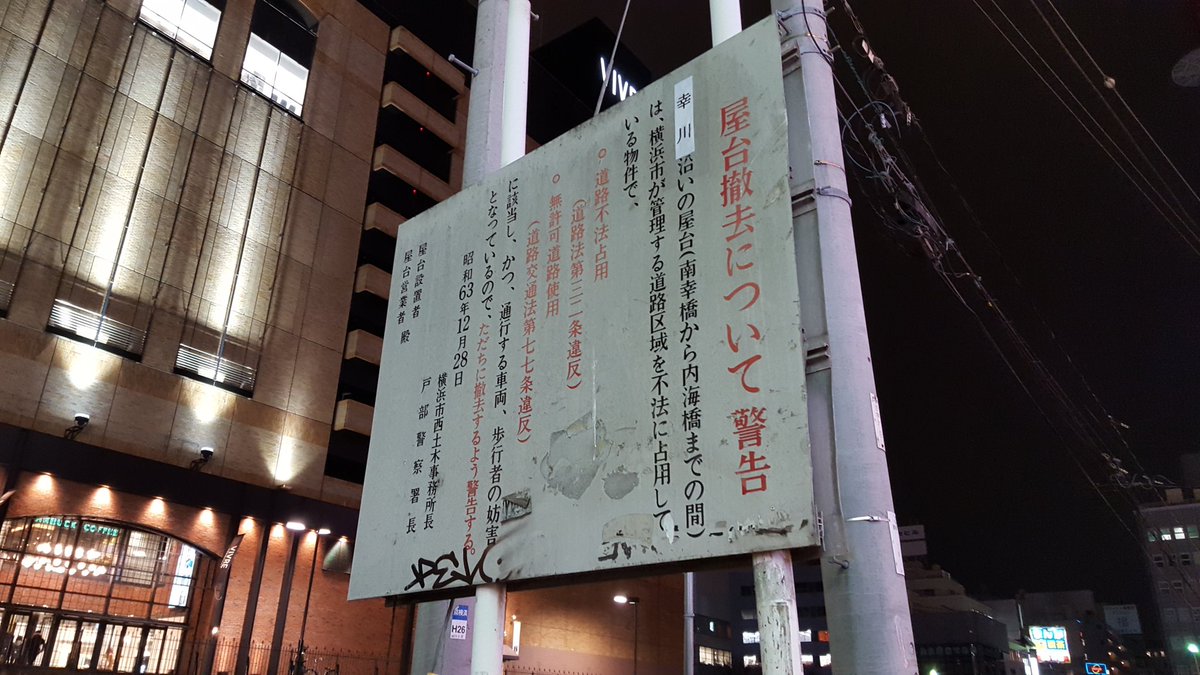 屋台撤去について 警告
幸川沿いの屋台(南幸橋から内海橋までの間)
は、横浜市が管理する道路区域を不法に占用して
いる物件で、
○ 道路不法占用
(道路法第三二条違反)
○ 無許可道路使用
(道路交通法第七七条違反)
に該当し、かつ、通行する車両、歩行者の妨害
となっているので、ただちに撤去するよう警告する。
昭和63年12月28日
横浜市西土木事務所長
戸部警察署長
屋台設置者
屋台営業者 殿
H26